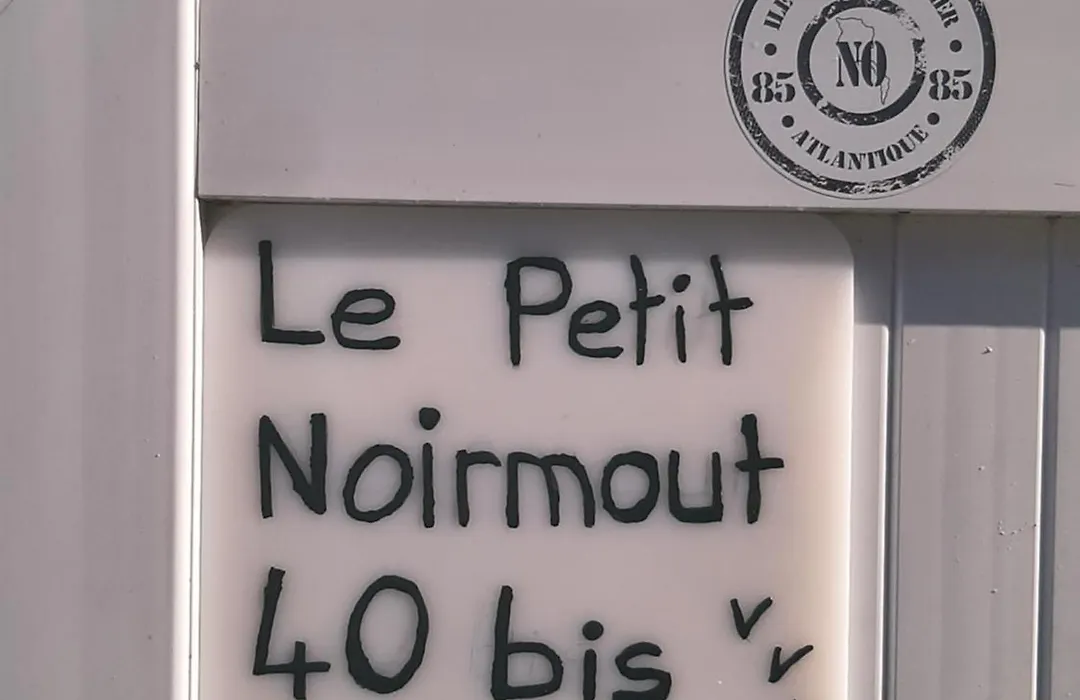 NO
85 85
ATLANTIQUE
Le Petit
Noirmout
40 bis